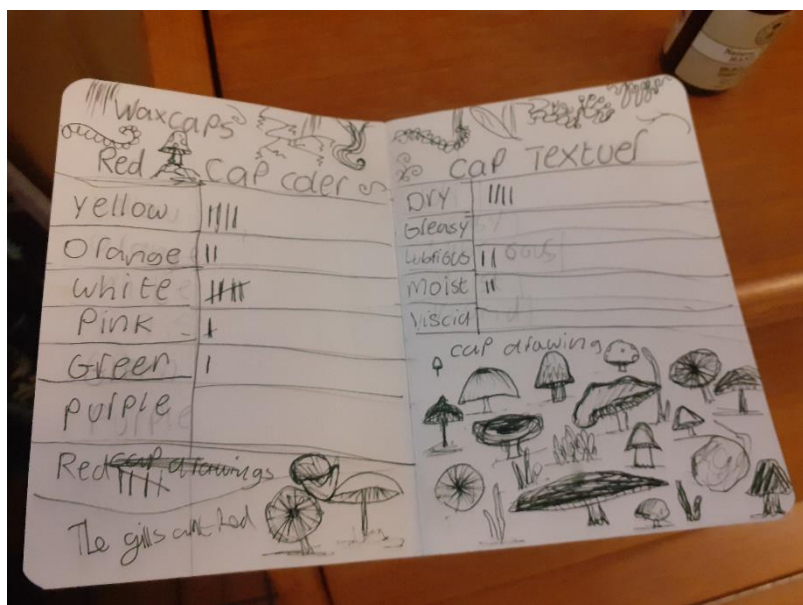 Waxcaps
Red cap coler
Yellow
Orange
white
Pink
Green
purple
Red cap drawings
The gills arnt Red
cap Textuer
Dry
Greasy
Lubrious
Moist
Viscid
cap drawing